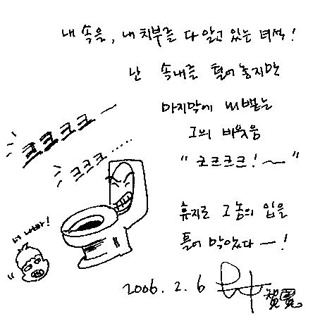 내 속을, 내 치부를 다 알고 있는 녀석!
난 속내를 털어 놓지만
마지막에 내뱉는
그의 비웃음
"크크크크!~"
휴지로 그놈의 입을
틀어 막았다—!
크크크크—
크크크.....
너 나빠!
2006. 2. 6